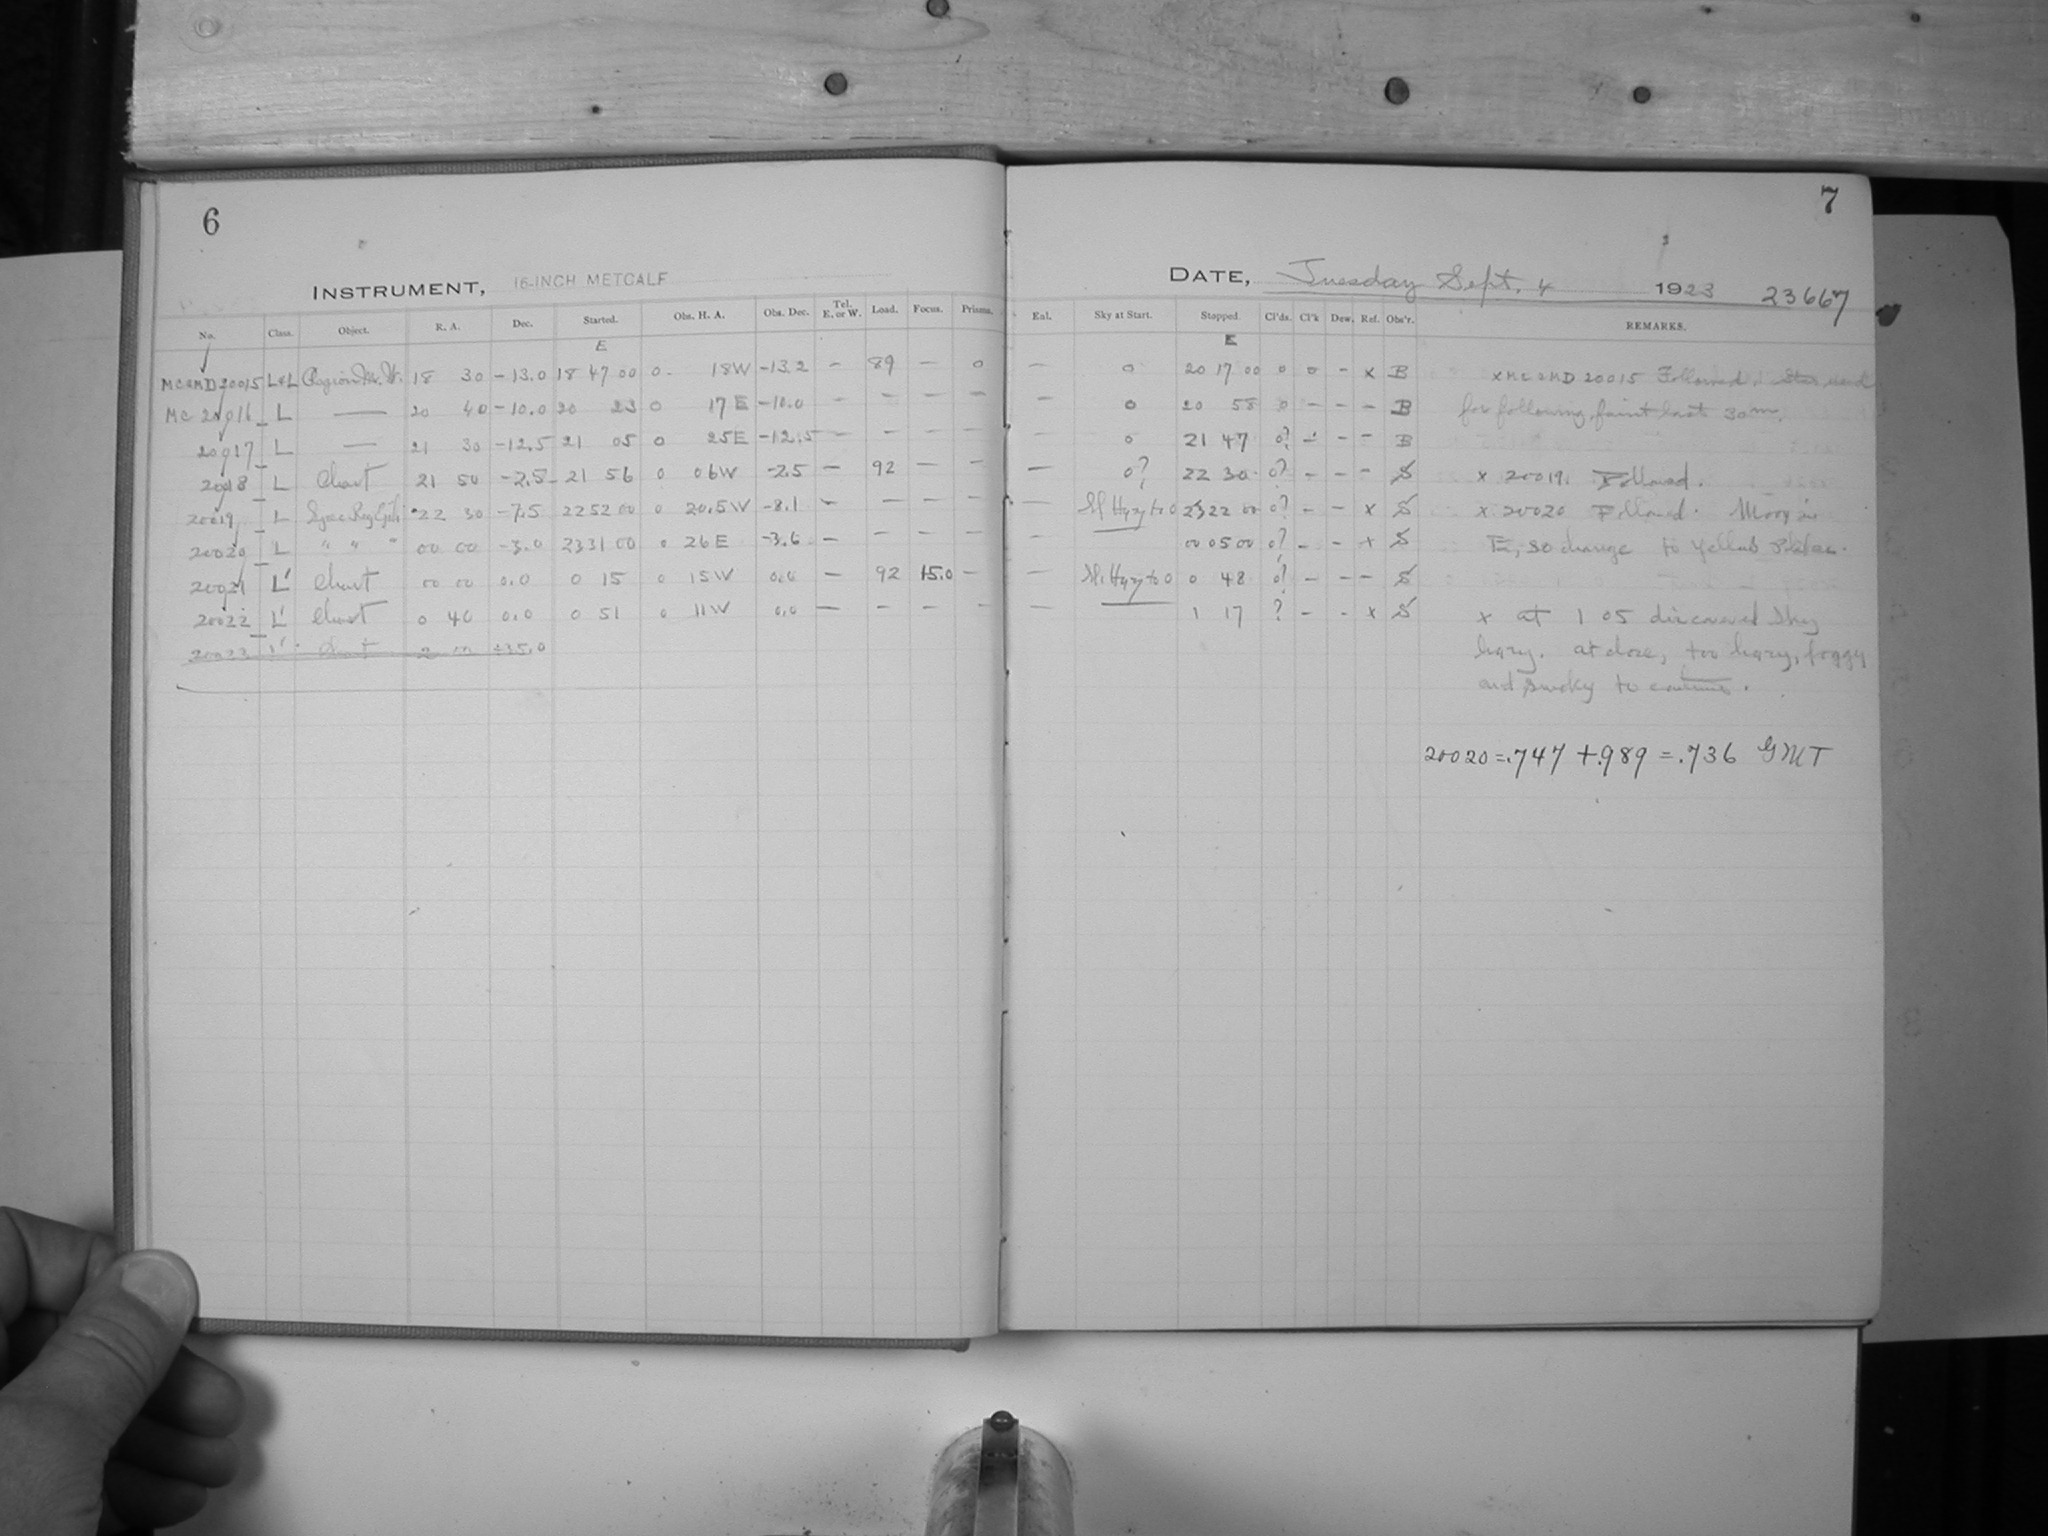 6
INSTRUMENT, 16-INCH METCALF
No. Class. Object. R. A. Dec. Started. Obs. H. A. Obs. Dec. Tel. E. or W. Load. Focus. Prisms.
E
MC&MD20015 L&L Region 18 30 -13.0 18 47 00 0 18W -13.2 - 89 - 0
MC 20016 L — 20 40 -10.0 20 23 0 17 E -10.0 - - - -
20017 L — 21 30 -12.5 21 05 0 25E -12.5 - - - -
20018 L Chart 21 50 -2.5 21 56 0 06W -2.5 - 92 - -
20019 L 22 30 -7.5 22 52 00 0 20.5W -8.1 - - - -
20020 L " " " 00 00 -3.0 23 31 00 0 26E -3.6 - - - -
20021 L' Chart 00 00 0.0 0 15 0 15W 0.0 - 92 15.0 -
20022 L' Chart 0 40 0.0 0 51 0 11W 0.0 - - - -
20023 L' Chart +35.0
7
DATE, Tuesday Sept. 4 1923 23667
Eal. Sky at Start. Stopped. Cl'ds. Cl'k Dew. Ref. Obs'r. REMARKS.
E
- 0 20 17 00 0 0 - x B x MC&MD 20015 Followed. Star used
- 0 20 58 0 - - - B for following faint last 30m.
- 0 21 47 0? - - - B
- 0? 22 30 0? - - - S x 20019. Followed.
- Sl Hazy to 0 23 22 00 0? - - x S x 20020 Followed. Moon in
- 00 05 00 0? - - x S E, so change to Yellow Plates.
- Sl. Hazy to 0 0 48 0? - - - S
- 1 17 ? - - x S x at 1 05 discovered sky
hazy. at close, too hazy, foggy
and smoky to continue.
20020 = .747 + .989 = .736 GMT